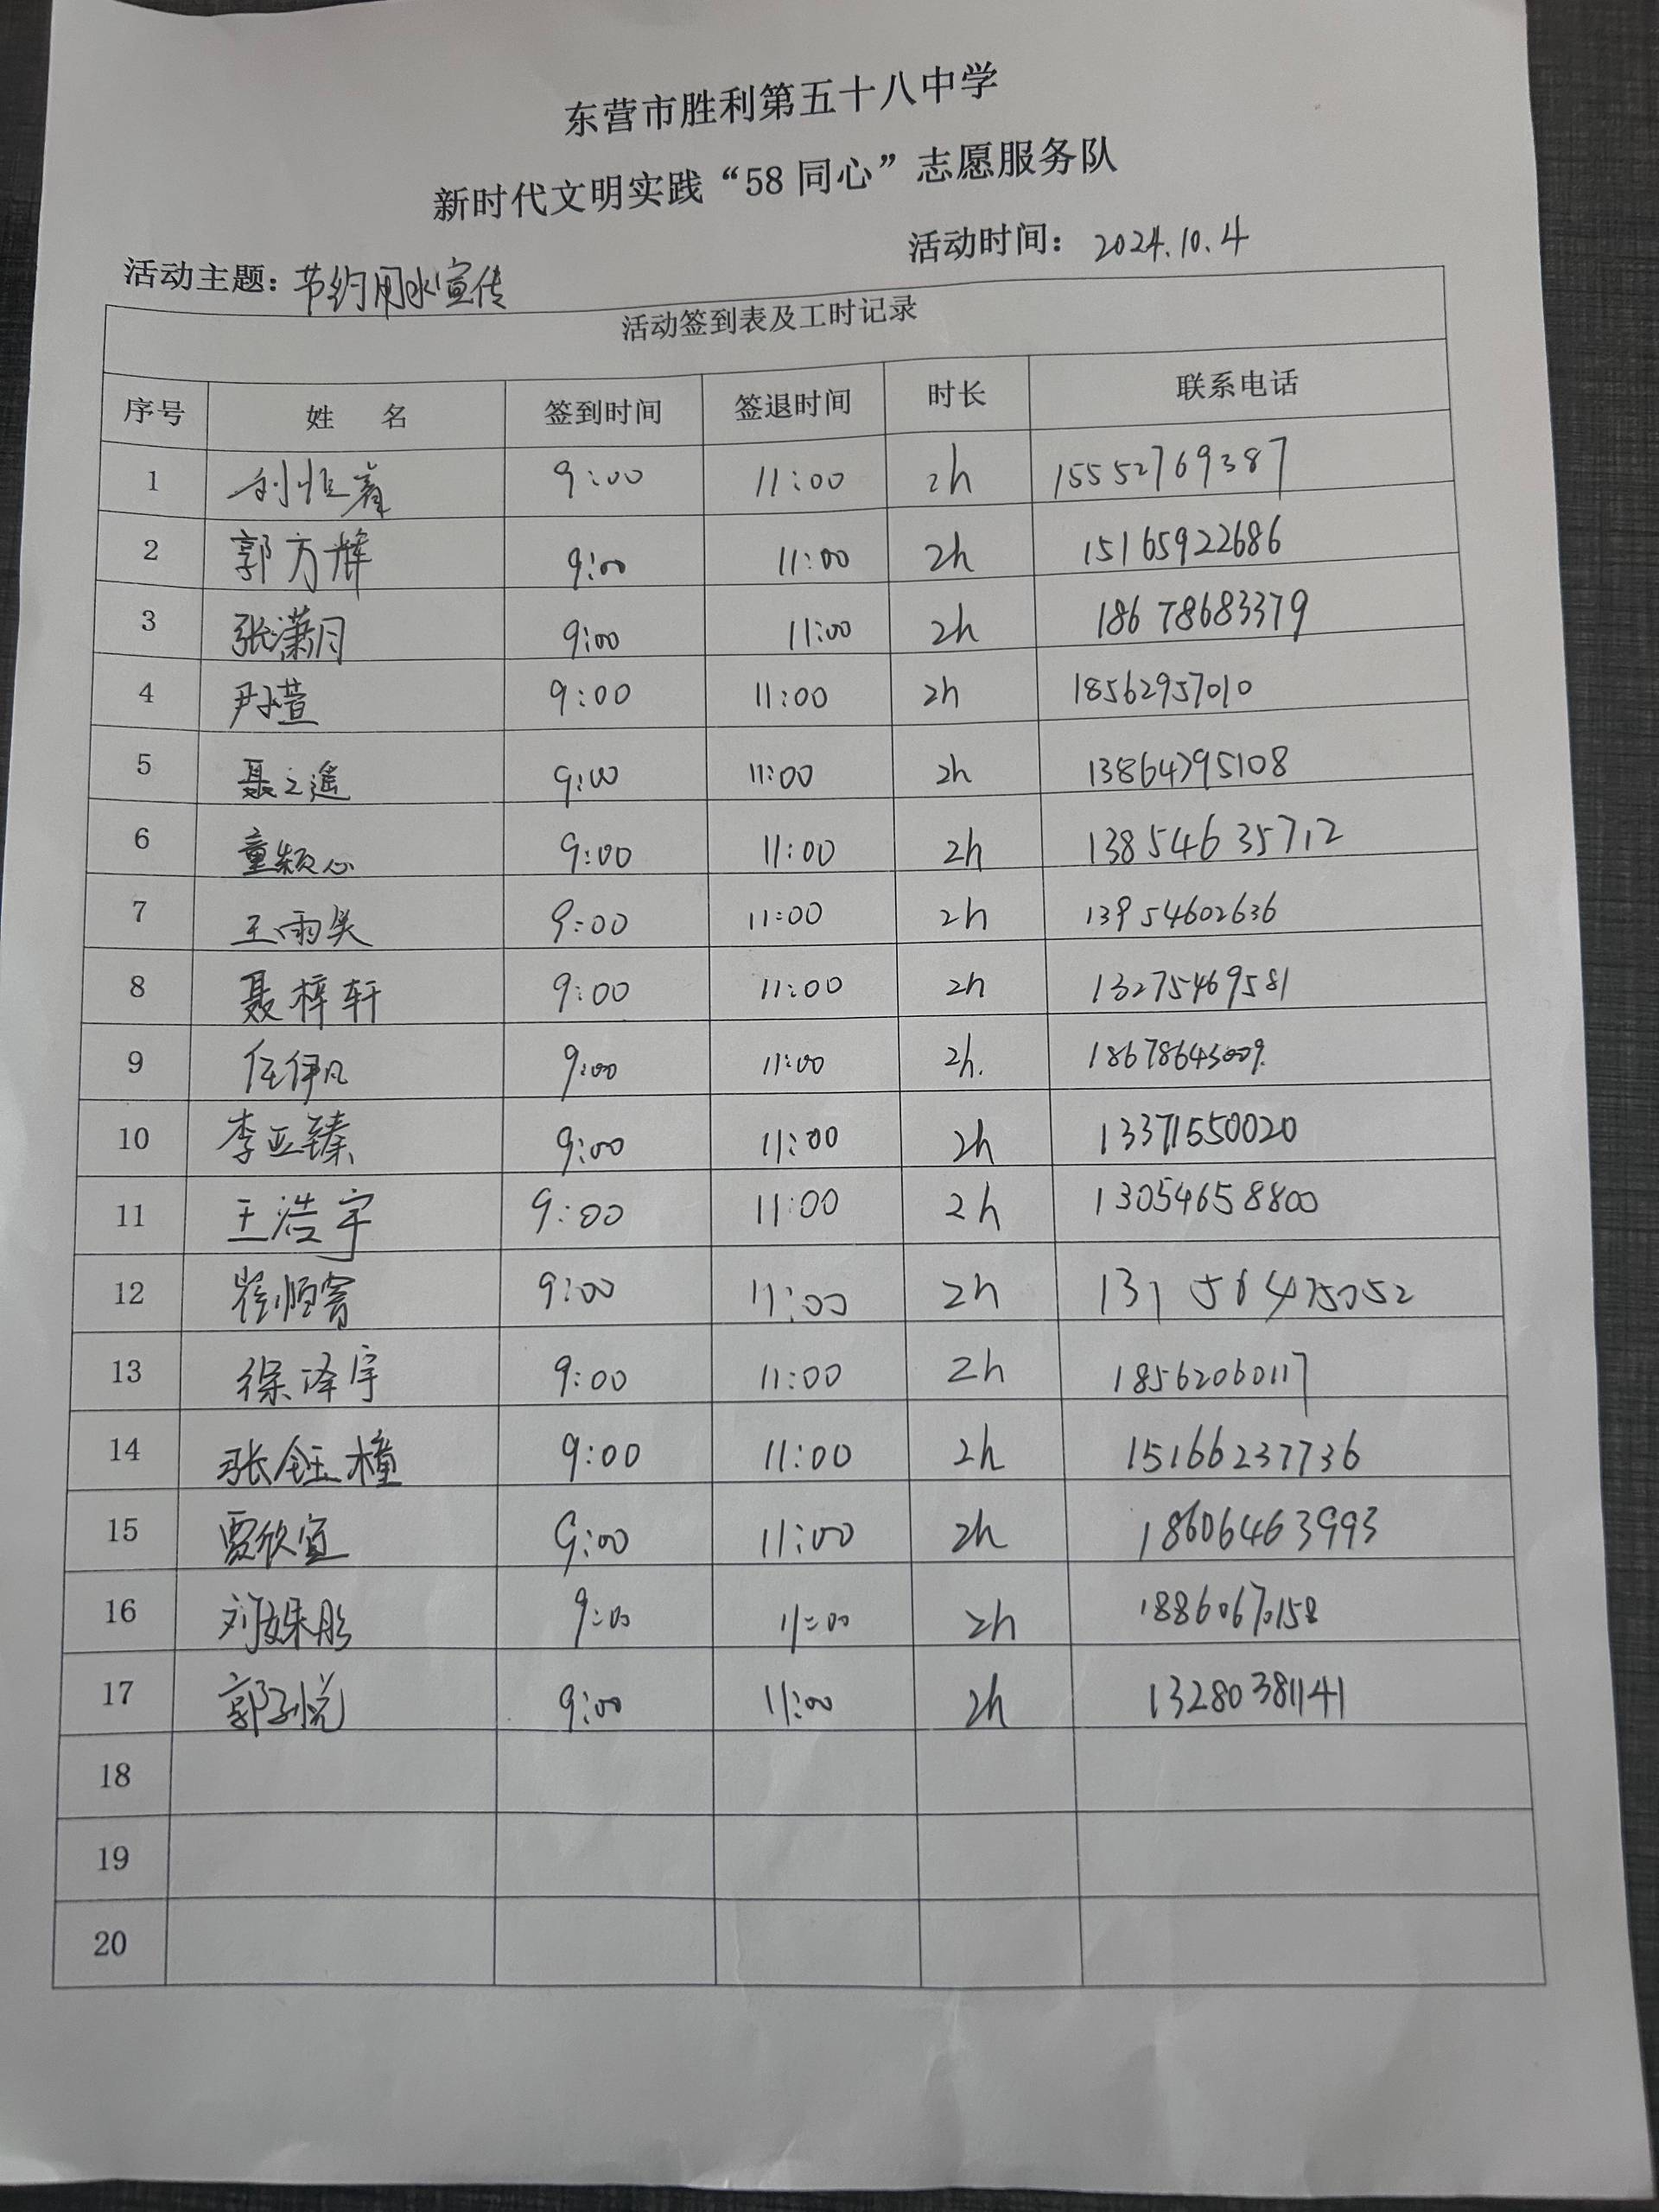 东营市胜利第五十八中学
新时代文明实践“58同心”志愿服务队
活动主题：节约用水宣传 活动时间：2024.10.4
活动签到表及工时记录
序号 姓 名 签到时间 签退时间 时长 联系电话
1 9:00 11:00 2h 15552769387
2 郭方辉 9:00 11:00 2h 15165922686
3 张潇月 9:00 11:00 2h 18678683379
4 尹子萱 9:00 11:00 2h 18562957010
5 聂之遥 9:00 11:00 2h 13864795108
6 童颖心 9:00 11:00 2h 13854635712
7 王雨笑 9:00 11:00 2h 13954602636
8 聂梓轩 9:00 11:00 2h 13275469581
9 任伊凡 9:00 11:00 2h. 18678645009.
10 李亚臻 9:00 11:00 2h 13371550020
11 王浩宇 9:00 11:00 2h 13054658800
12 9:00 11:00 2h
13 徐泽宇 9:00 11:00 2h 18562060117
14 张钰橦 9:00 11:00 2h 15166237736
15 贾欣宜 9:00 11:00 2h 18606463993
16 刘姝彤 9:00 11:00 2h 18860670158
17 郭子悦 9:00 11:00 2h 13280381141
18
19
20